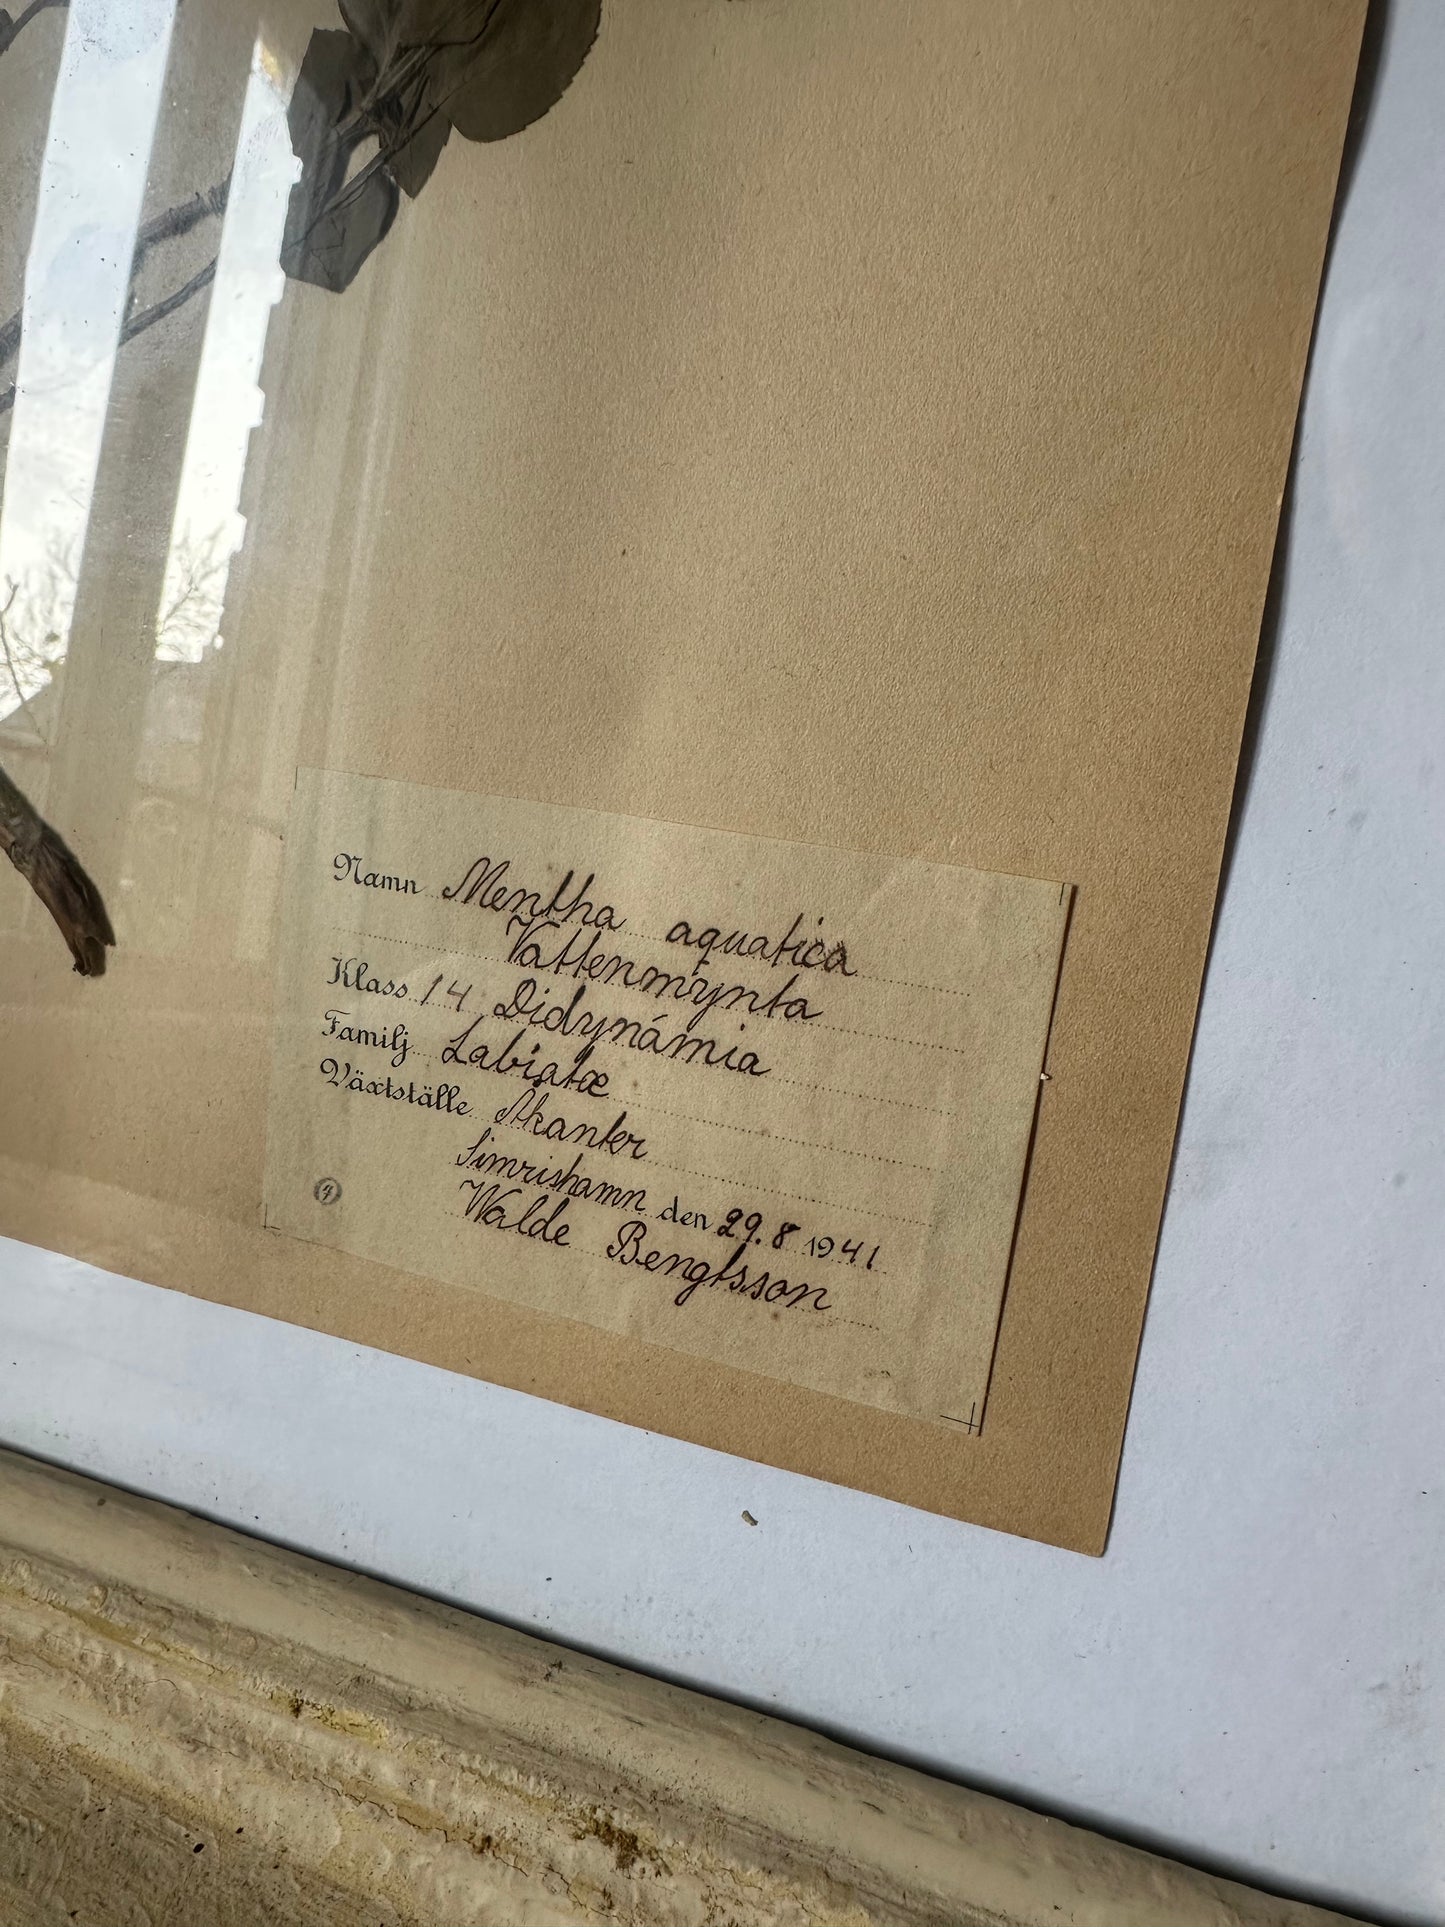 Namn Mentha aquatica
Vattenmynta
Klass 14 Didynámia
Familj Labiatæ
Växtställe Åkanter
Simrishamn den 29.8 1941
Walde Bengtsson
4